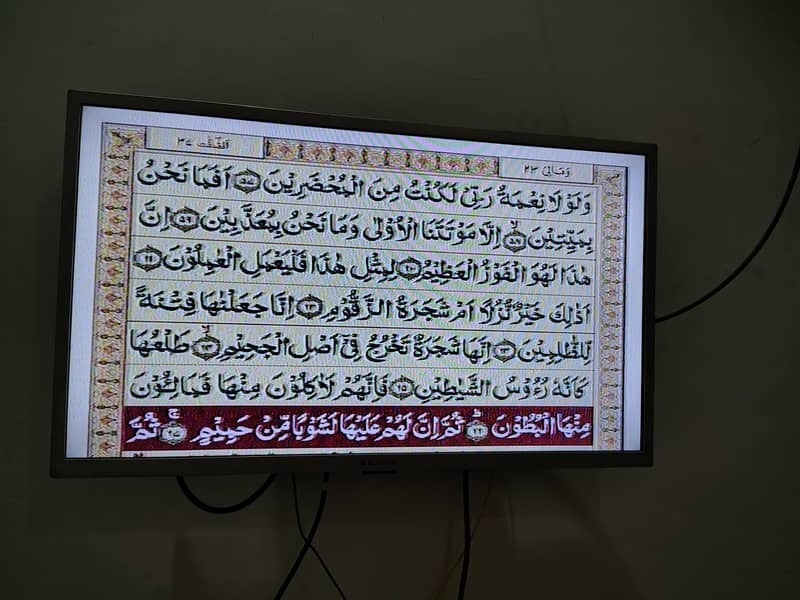 وَمَالِیَ ٢٣
الصّٰٓفّٰت ٣٧
وَلَوْ لَا نِعْمَةُ رَبِّیْ لَكُنْتُ مِنَ الْمُحْضَرِیْنَ ۝٥٧ اَفَمَا نَحْنُ
بِمَیِّتِیْنَ ۝٥٨ اِلَّا مَوْتَتَنَا الْاُوْلٰى وَمَا نَحْنُ بِمُعَذَّبِیْنَ ۝٥٩ اِنَّ
هٰذَا لَهُوَ الْفَوْزُ الْعَظِیْمُ ۝٦٠ لِمِثْلِ هٰذَا فَلْیَعْمَلِ الْعٰمِلُوْنَ ۝٦١
اَذٰلِكَ خَیْرٌ نُّزُلًا اَمْ شَجَرَةُ الزَّقُّوْمِ ۝٦٢ اِنَّا جَعَلْنٰهَا فِتْنَةً
لِّلظّٰلِمِیْنَ ۝٦٣ اِنَّهَا شَجَرَةٌ تَخْرُجُ فِیْۤ اَصْلِ الْجَحِیْمِ ۝٦٤ طَلْعُهَا
كَاَنَّهٗ رُءُوْسُ الشَّیٰطِیْنِ ۝٦٥ فَاِنَّهُمْ لَاٰكِلُوْنَ مِنْهَا فَمَالِـُٔوْنَ
مِنْهَا الْبُطُوْنَ ۝٦٦ؕ ثُمَّ اِنَّ لَهُمْ عَلَیْهَا لَشَوْبًا مِّنْ حَمِیْمٍ ۝٦٧ۚ ثُمَّ